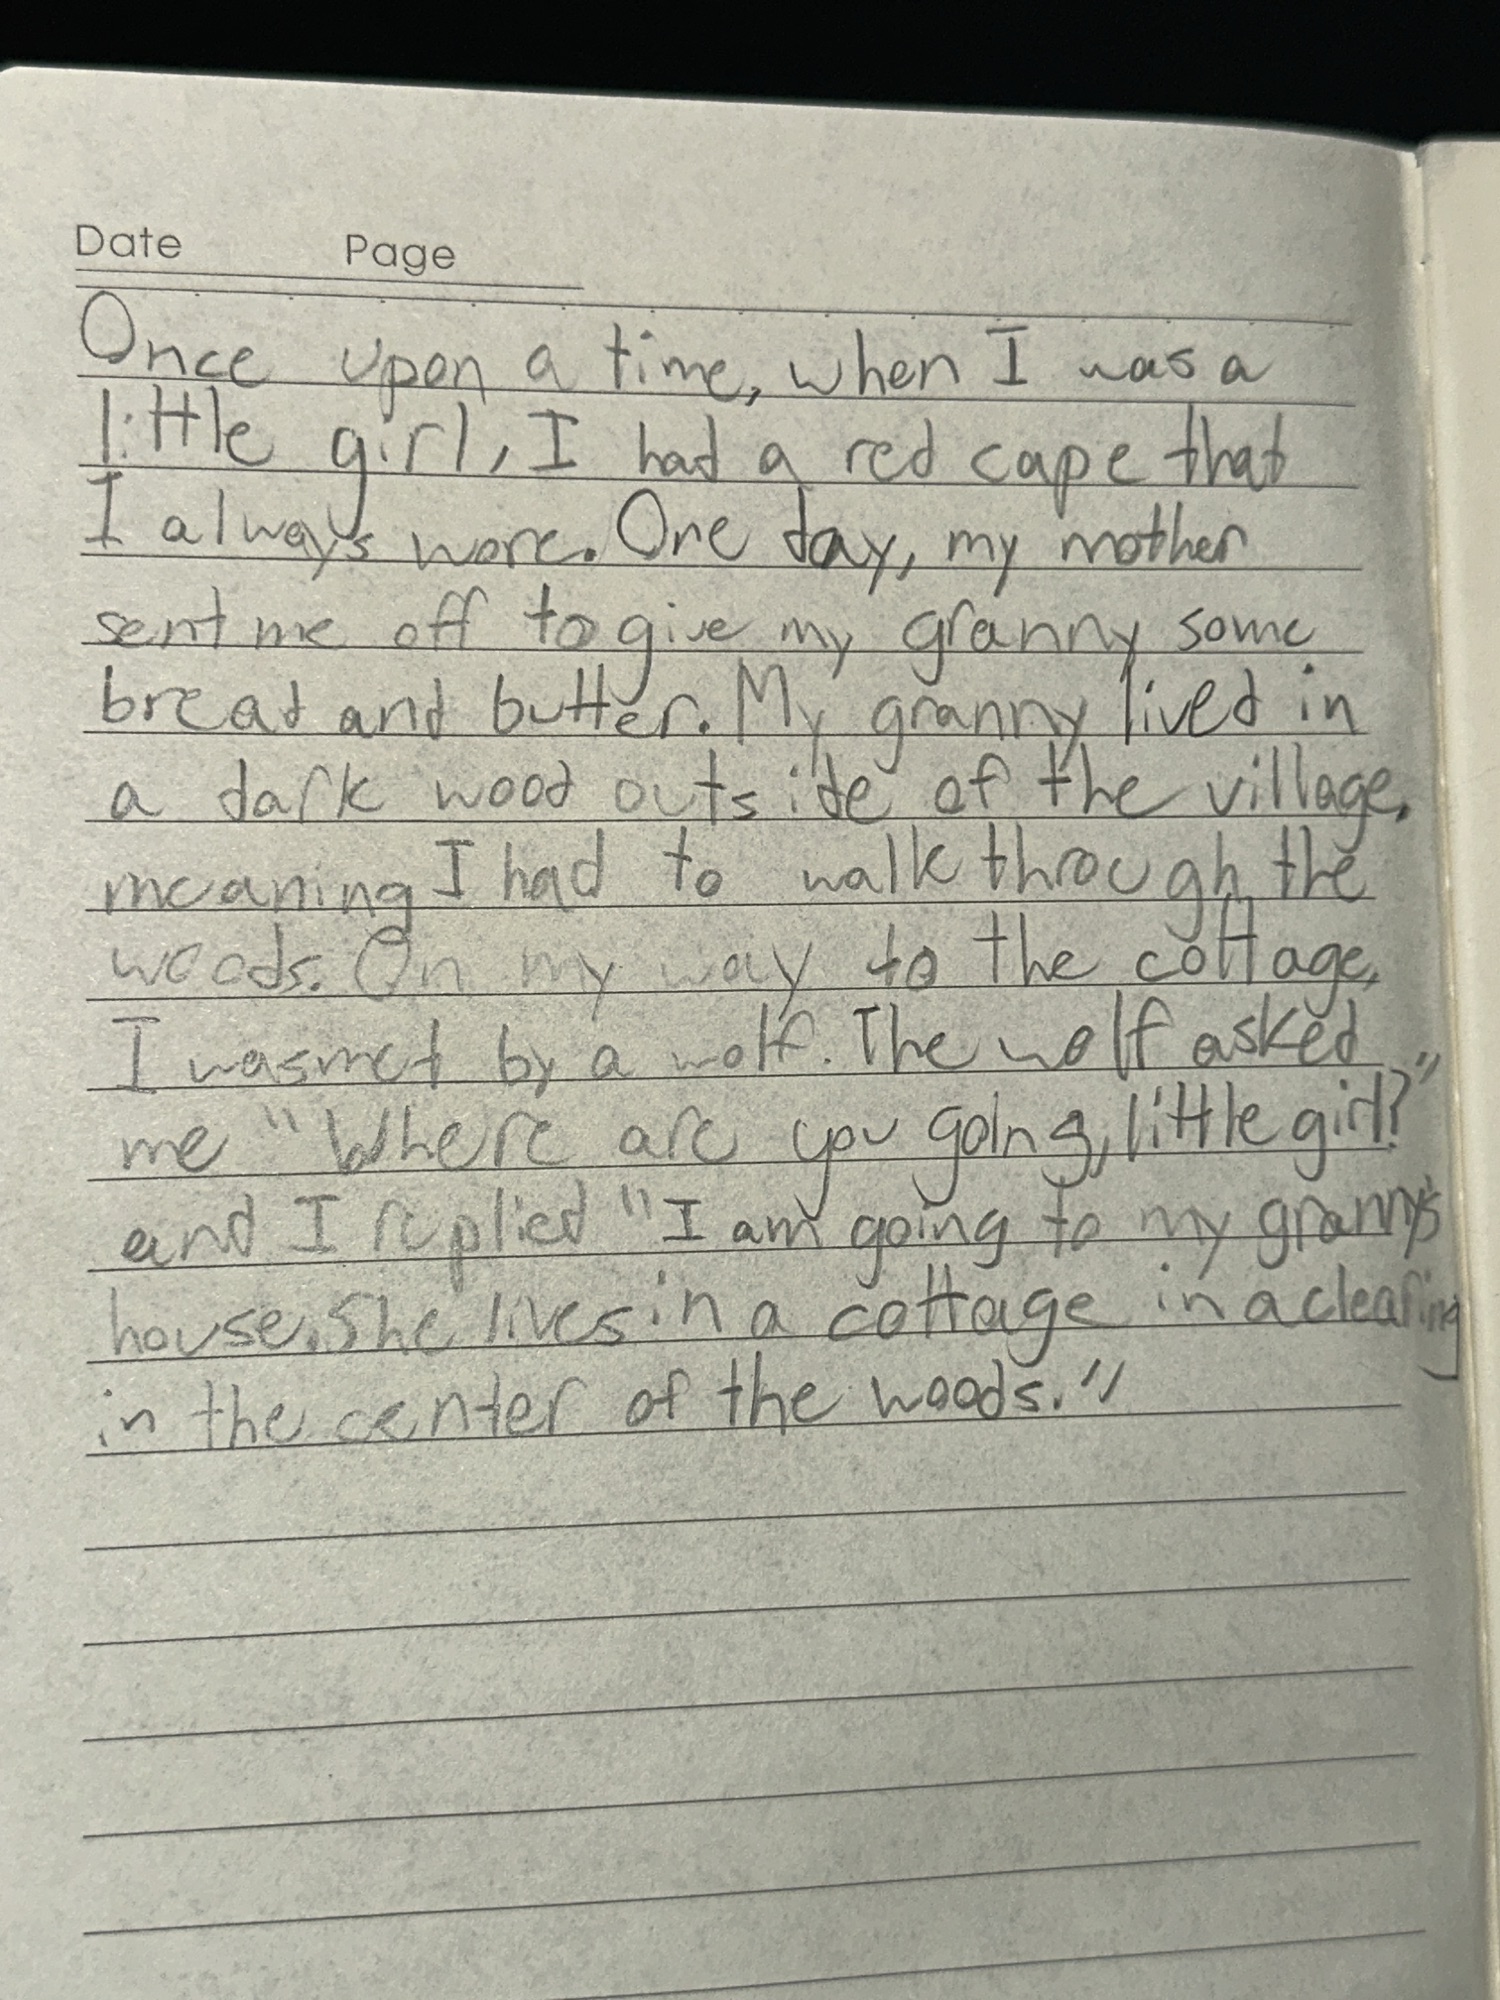 Date Page
Once upon a time, when I was a
little girl, I had a red cape that
I always wore. One day, my mother
sent me off to give my granny some
bread and butter. My granny lived in
a dark wood outside of the village,
meaning I had to walk through the
woods. On my way to the cottage,
I was met by a wolf. The wolf asked
me "Where are you going, little girl?"
and I replied "I am going to my granny's
house. She lives in a cottage in a clearing
in the center of the woods."